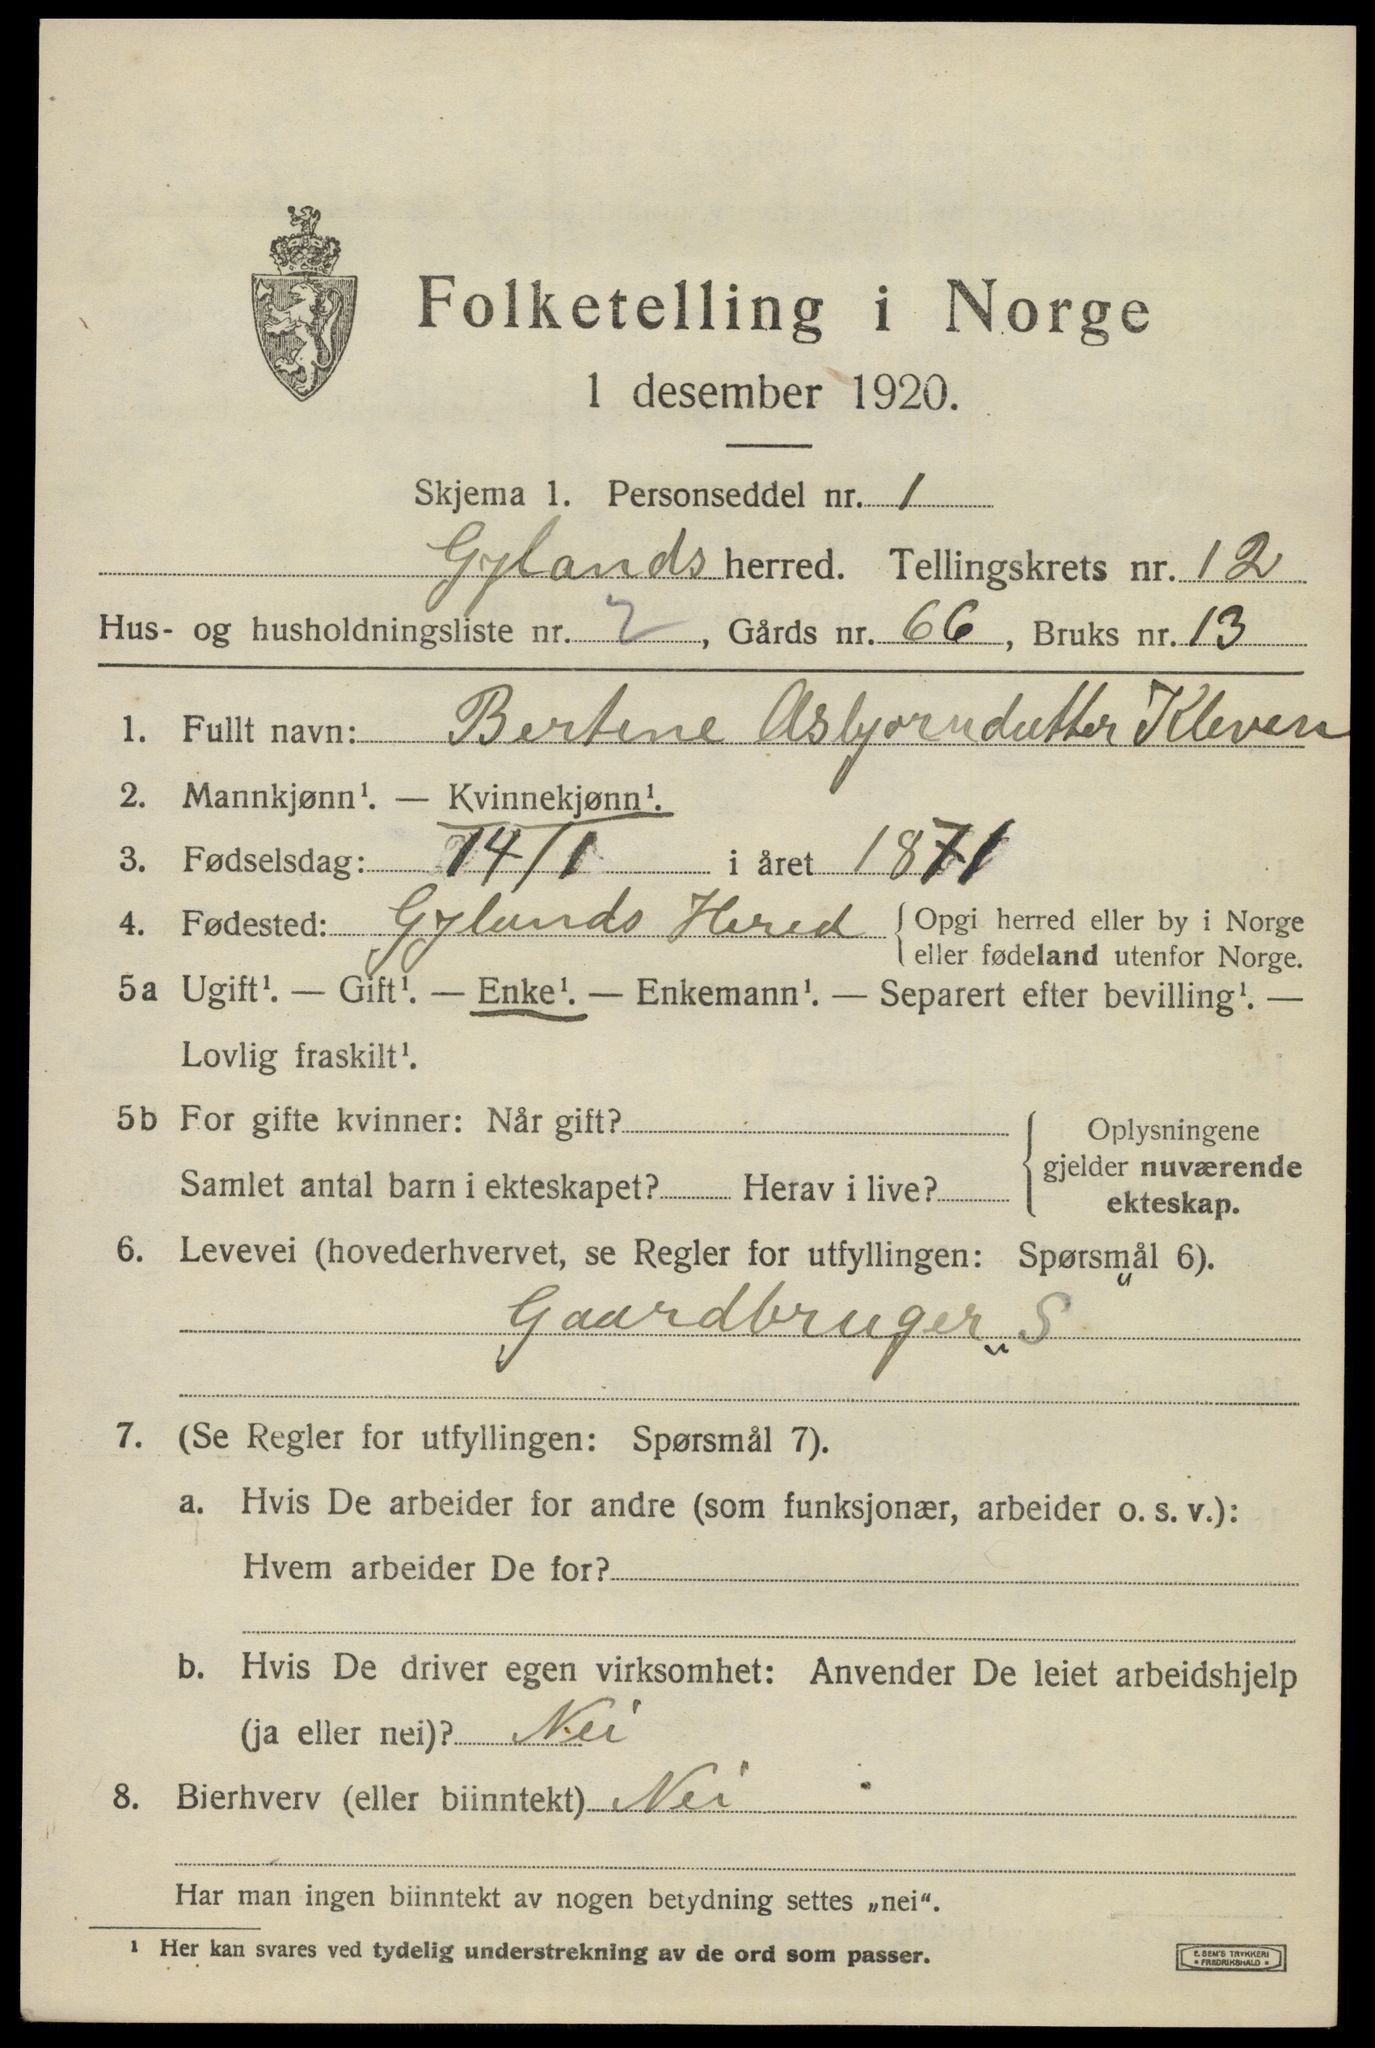 Folketelling i Norge
1 desember 1920.
Skjema 1. Personseddel nr. 1
Gylands herred. Tellingskrets nr. 12
Hus- og husholdningsliste nr. 2, Gårds nr. 66, Bruks nr. 13
1. Fullt navn: Bertine Asbjorndutter Kleven
2. Mannkjønn¹. — Kvinnekjønn¹.
3. Fødselsdag: 14/1 i året 1871
4. Fødested: Gylands Hered { Opgi herred eller by i Norge
eller fødeland utenfor Norge.
5a Ugift¹. — Gift¹. — Enke¹. — Enkemann¹. — Separert efter bevilling¹. —
Lovlig fraskilt¹.
5b For gifte kvinner: Når gift?
Samlet antal barn i ekteskapet? Herav i live?
Oplysningene
gjelder nuværende
ekteskap.
6. Levevei (hovederhvervet, se Regler for utfyllingen: Spørsmål 6).
Gaardbruger „S"
7. (Se Regler for utfyllingen: Spørsmål 7).
a. Hvis De arbeider for andre (som funksjonær, arbeider o. s. v.):
Hvem arbeider De for?
b. Hvis De driver egen virksomhet: Anvender De leiet arbeidshjelp
(ja eller nei)? Nei
8. Bierhverv (eller biinntekt) Nei
Har man ingen biinntekt av nogen betydning settes „nei“.
¹ Her kan svares ved tydelig understrekning av de ord som passer.
E. SEM'S TRYKKERI
* FREDRIKSHALD *